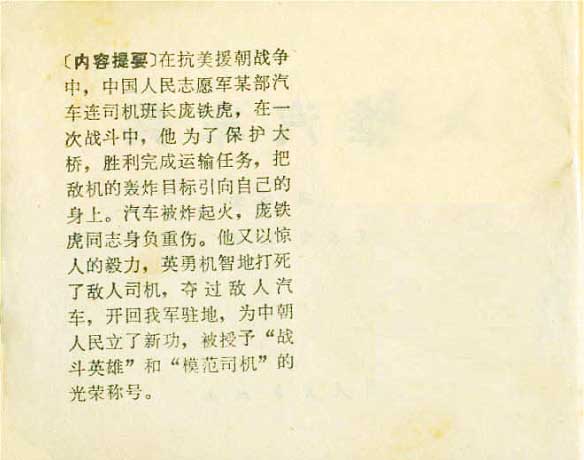 〔内容提要〕在抗美援朝战争
中，中国人民志愿军某部汽
车连司机班长庞铁虎，在一
次战斗中，他为了保护大
桥，胜利完成运输任务，把
敌机的轰炸目标引向自己的
身上。汽车被炸起火，庞铁
虎同志身负重伤。他又以惊
人的毅力，英勇机智地打死
了敌人司机，夺过敌人汽
车，开回我军驻地，为中朝
人民立了新功，被授予“战
斗英雄”和“模范司机”的
光荣称号。